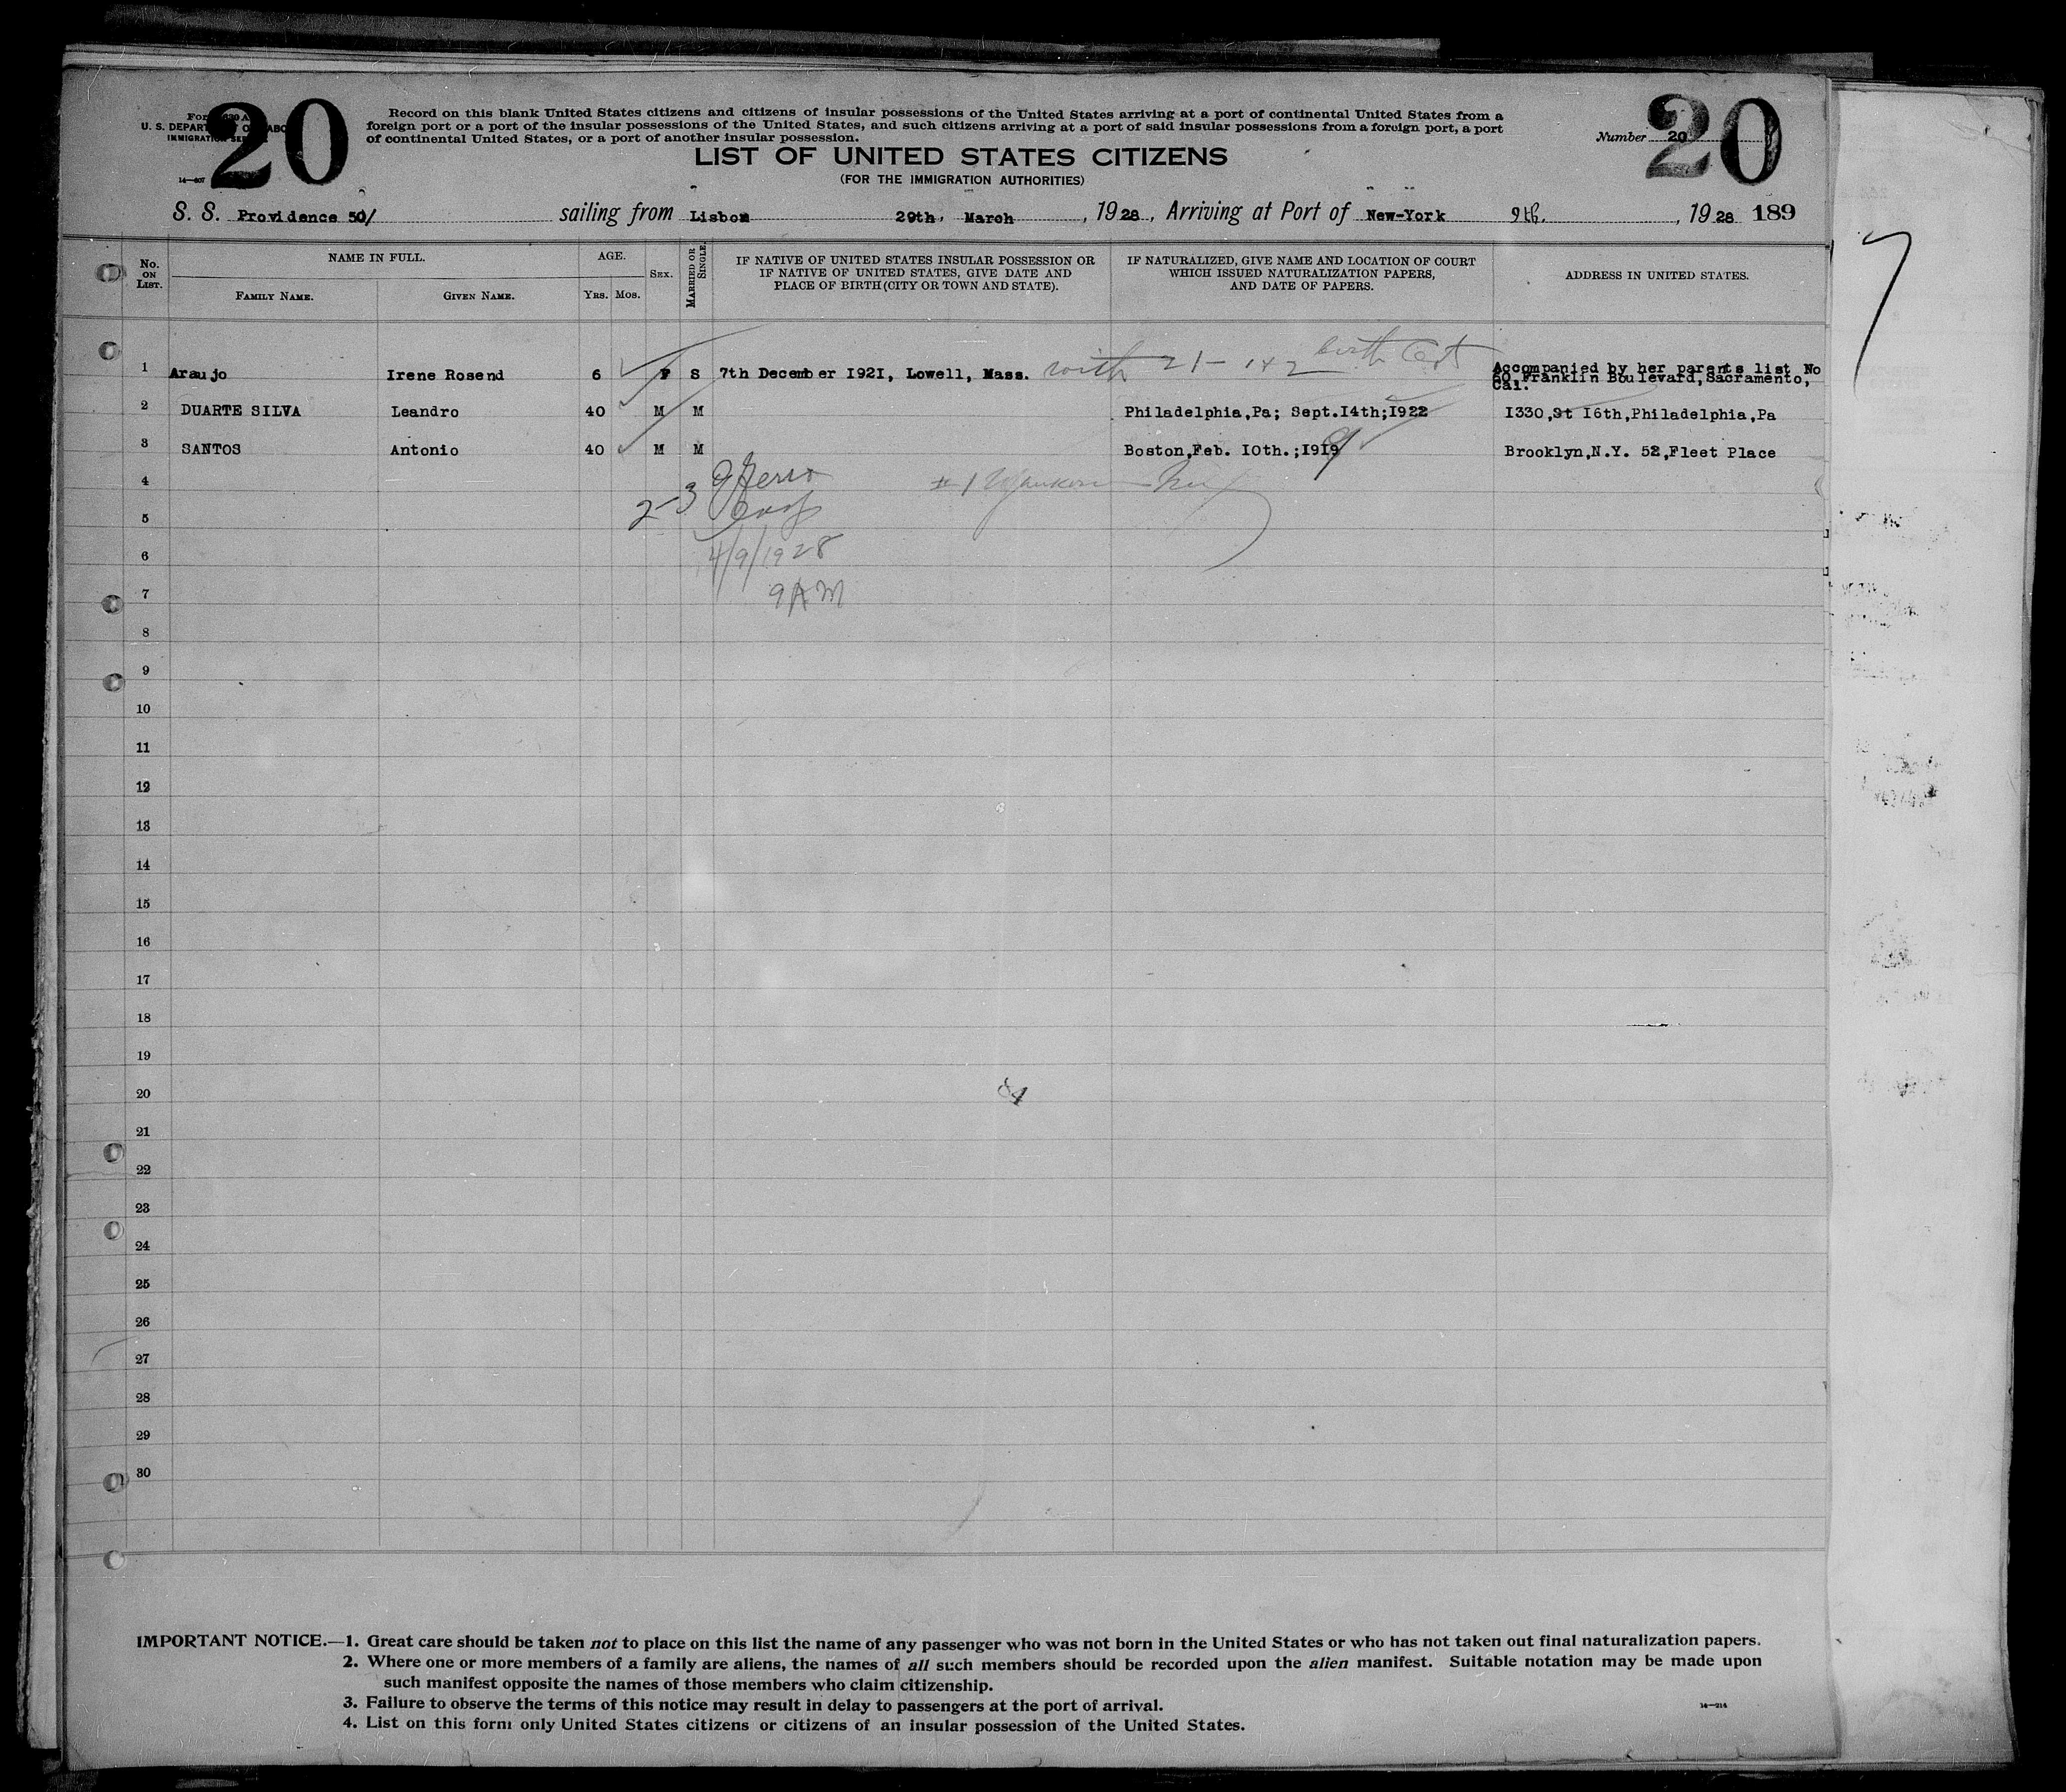 20
Record on this blank United States citizens and citizens of insular possessions of the United States arriving at a port of continental United States from a
foreign port or a port of the insular possessions of the United States, and such citizens arriving at a port of said insular possessions from a foreign port, a port
of continental United States, or a port of another insular possession.
U. S. DEPARTMENT OF LABOR
IMMIGRATION SERVICE
14—207
Number 20
20
LIST OF UNITED STATES CITIZENS
(FOR THE IMMIGRATION AUTHORITIES)
S. S. Providence 50/ sailing from Lisbon 29th, March, 1928, Arriving at Port of New-York 9th., 1928 189
No. ON LIST.
NAME IN FULL.
FAMILY NAME.
GIVEN NAME.
AGE.
YRS. MOS.
SEX.
MARRIED OR SINGLE.
IF NATIVE OF UNITED STATES INSULAR POSSESSION OR
IF NATIVE OF UNITED STATES, GIVE DATE AND
PLACE OF BIRTH (CITY OR TOWN AND STATE).
IF NATURALIZED, GIVE NAME AND LOCATION OF COURT
WHICH ISSUED NATURALIZATION PAPERS,
AND DATE OF PAPERS.
ADDRESS IN UNITED STATES.
7
1 Araujo Irene Rosend 6 F S 7th December 1921, Lowell, Mass. with 21 - 1+2 birth Cert Accompanied by her parents list No
60, Franklin Boulevard, Sacramento,
Cal.
2 DUARTE SILVA Leandro 40 M M Philadelphia,Pa; Sept.14th;1922 1330,St 16th,Philadelphia,Pa
3 SANTOS Antonio 40 M M Boston,Feb. 10th.;1919 9 Brooklyn,N.Y. 52,Fleet Place
4 2-3 #1
5
6 4/9/1928
7 9 AM
8
9
10
11
12
13
14
15
16
17
18
19
20
21
22
23
24
25
26
27
28
29
30
IMPORTANT NOTICE.—1. Great care should be taken not to place on this list the name of any passenger who was not born in the United States or who has not taken out final naturalization papers.
2. Where one or more members of a family are aliens, the names of all such members should be recorded upon the alien manifest. Suitable notation may be made upon
such manifest opposite the names of those members who claim citizenship.
3. Failure to observe the terms of this notice may result in delay to passengers at the port of arrival.
4. List on this form only United States citizens or citizens of an insular possession of the United States.
14—214